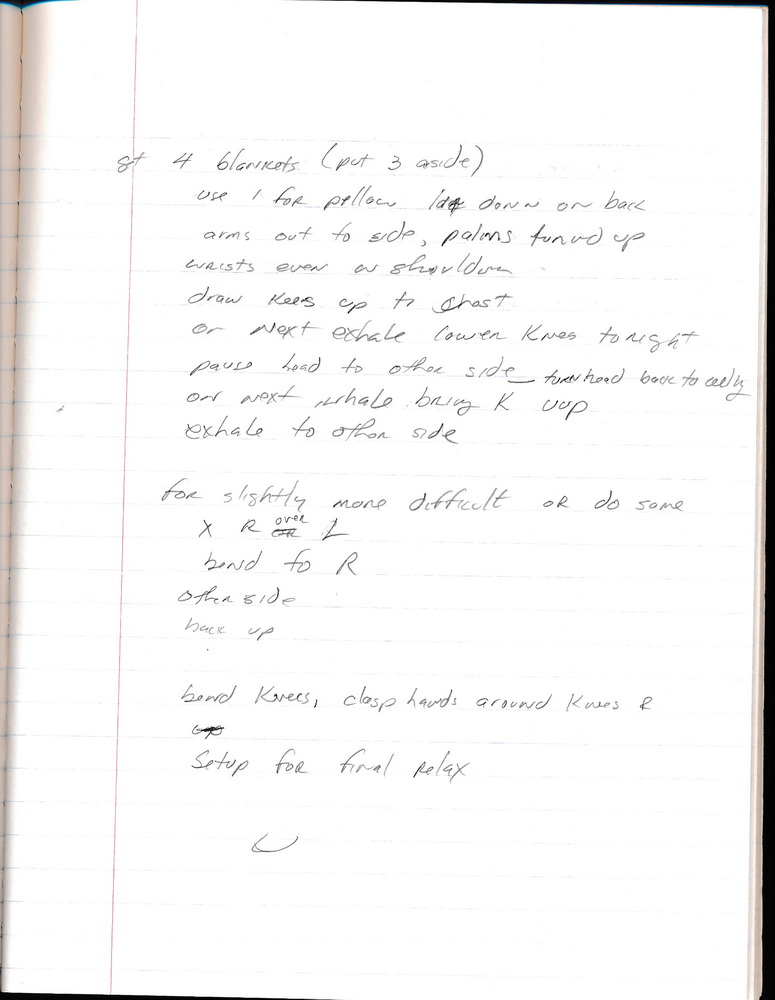 gt 4 blankets (put 3 aside)
use 1 for pillow lay down on back
arms out to side, palms turned up
wrists even w shoulders
draw knees up to chest
on next exhale lower knees to right
pause head to other side — turn head back to ceiling
on next inhale bring K up
exhale to other side
for slightly more difficult or do same
X R over L
bend to R
other side
back up
bend knees, clasp hands around knees &
Setup for final relax